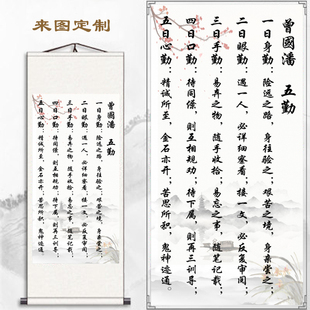 来图定制
曾國潘 五勤
一曰身勤：險遠之路，身往驗之；艱苦之境，身親嘗之；
二曰眼勤：遇一人，必詳細察看；接一文，必反復審閱；
三曰手勤：易棄之物，隨手收拾；易忘之事，隨筆記載；
四曰口勤：待同僚，則互相規勸；待下屬，則再三訓導；
五曰心勤：精誠所至，金石亦開；苦思所積，鬼神迹通。
曾國潘 五勤
一曰身勤：險遠之路，身往驗之；艱苦之境，身親嘗之；
二曰眼勤：遇一人，必詳細察看；接一文，必反復審閱；
三曰手勤：易棄之物，隨手收拾；易忘之事，隨筆記載；
四曰口勤：待同僚，則互相規勸；待下屬，則再三訓導；
五曰心勤：精誠所至，金石亦開；苦思所積，鬼神迹通。